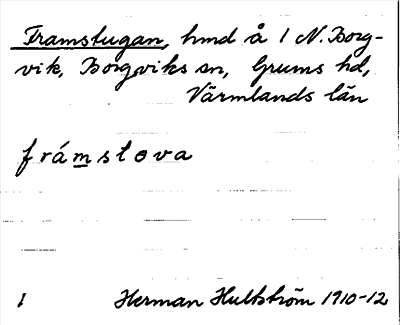 Framstugan, hmd å 1 N. Borg-
vik, Borgviks sn, Grums hd,
Värmlands län
frámstova
1 Herman Hultström 1910-12